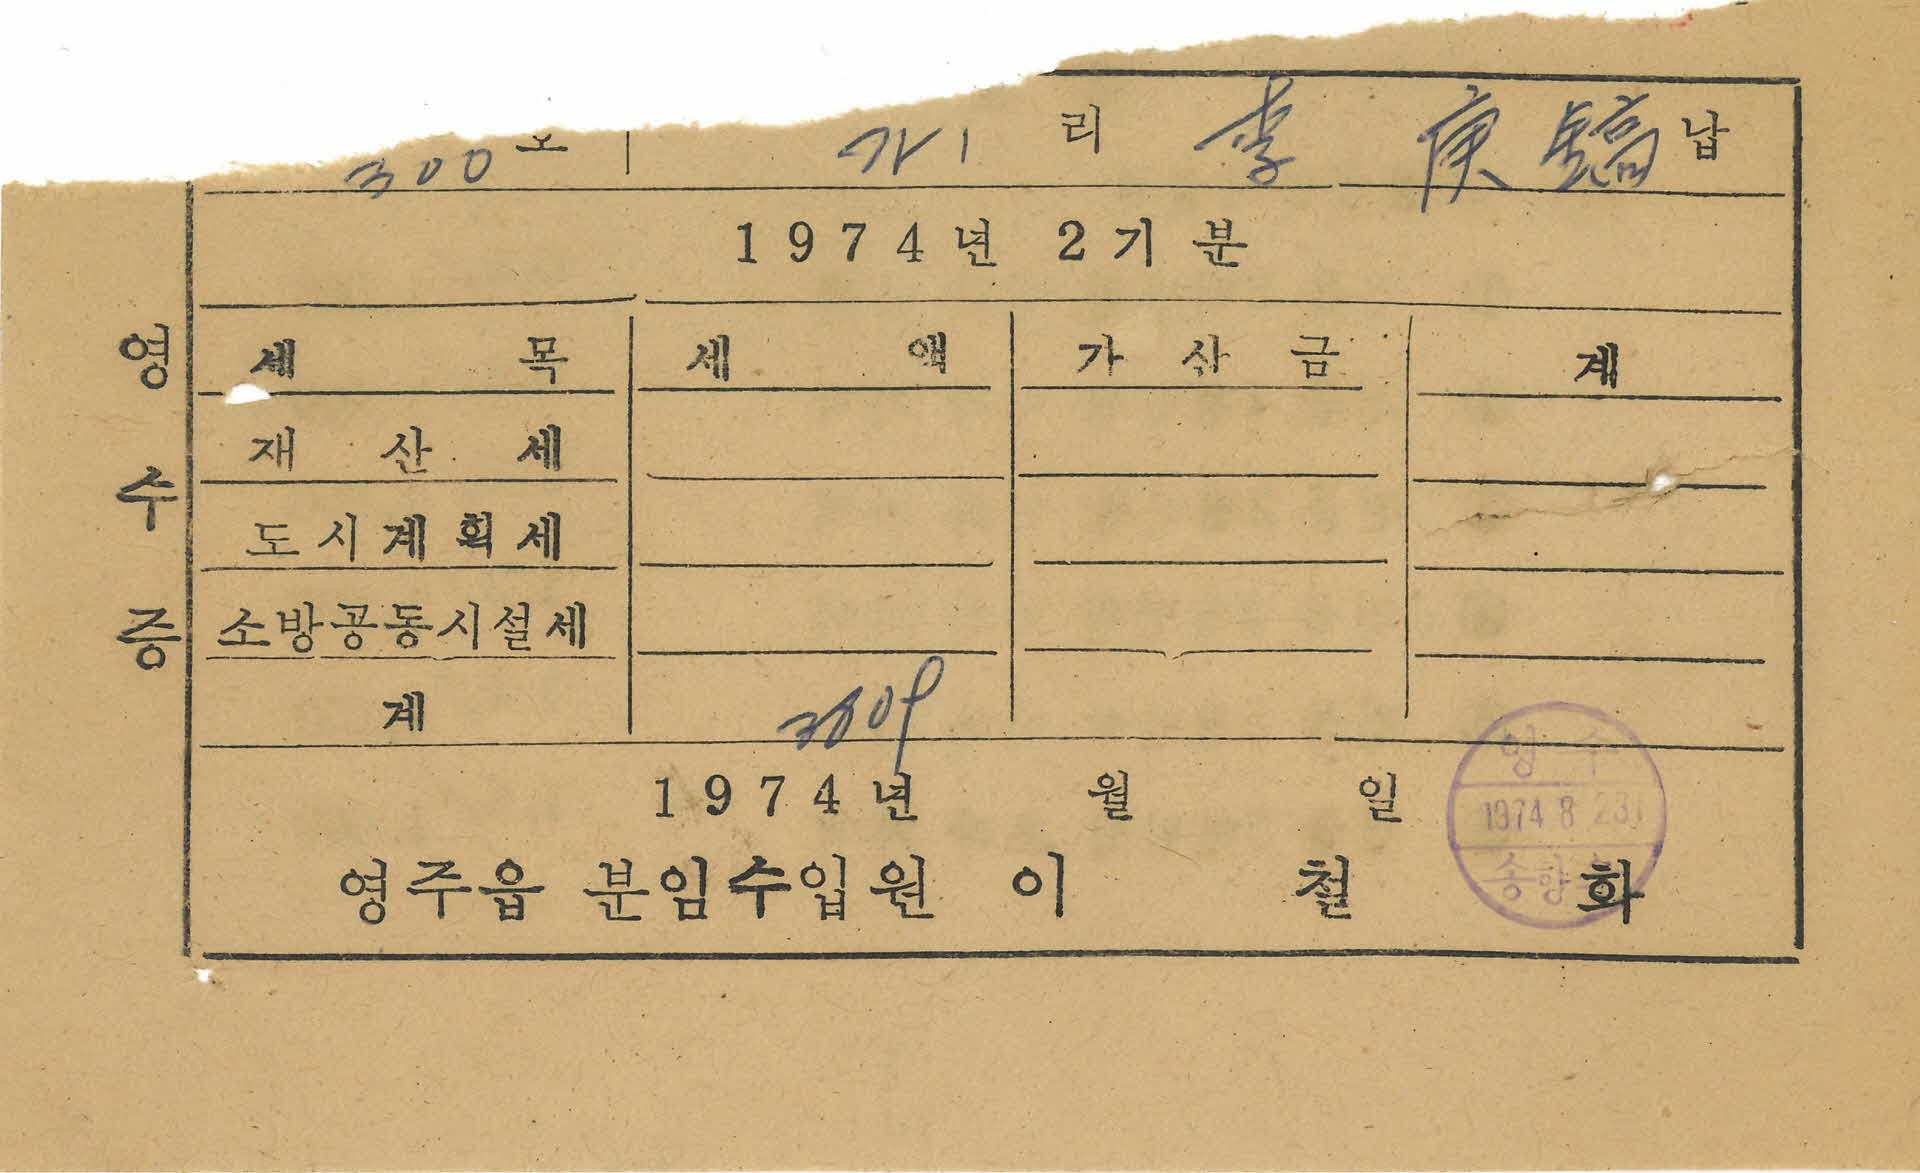 300 가1 리 李 庚 鎬 납
1974년 2기분
영수증
세목 세액 가산금 계
재산세
도시계획세
소방공동시설세
계
1974년 월 일
영수
1974 8 23
영주읍 분임수입원 이철화